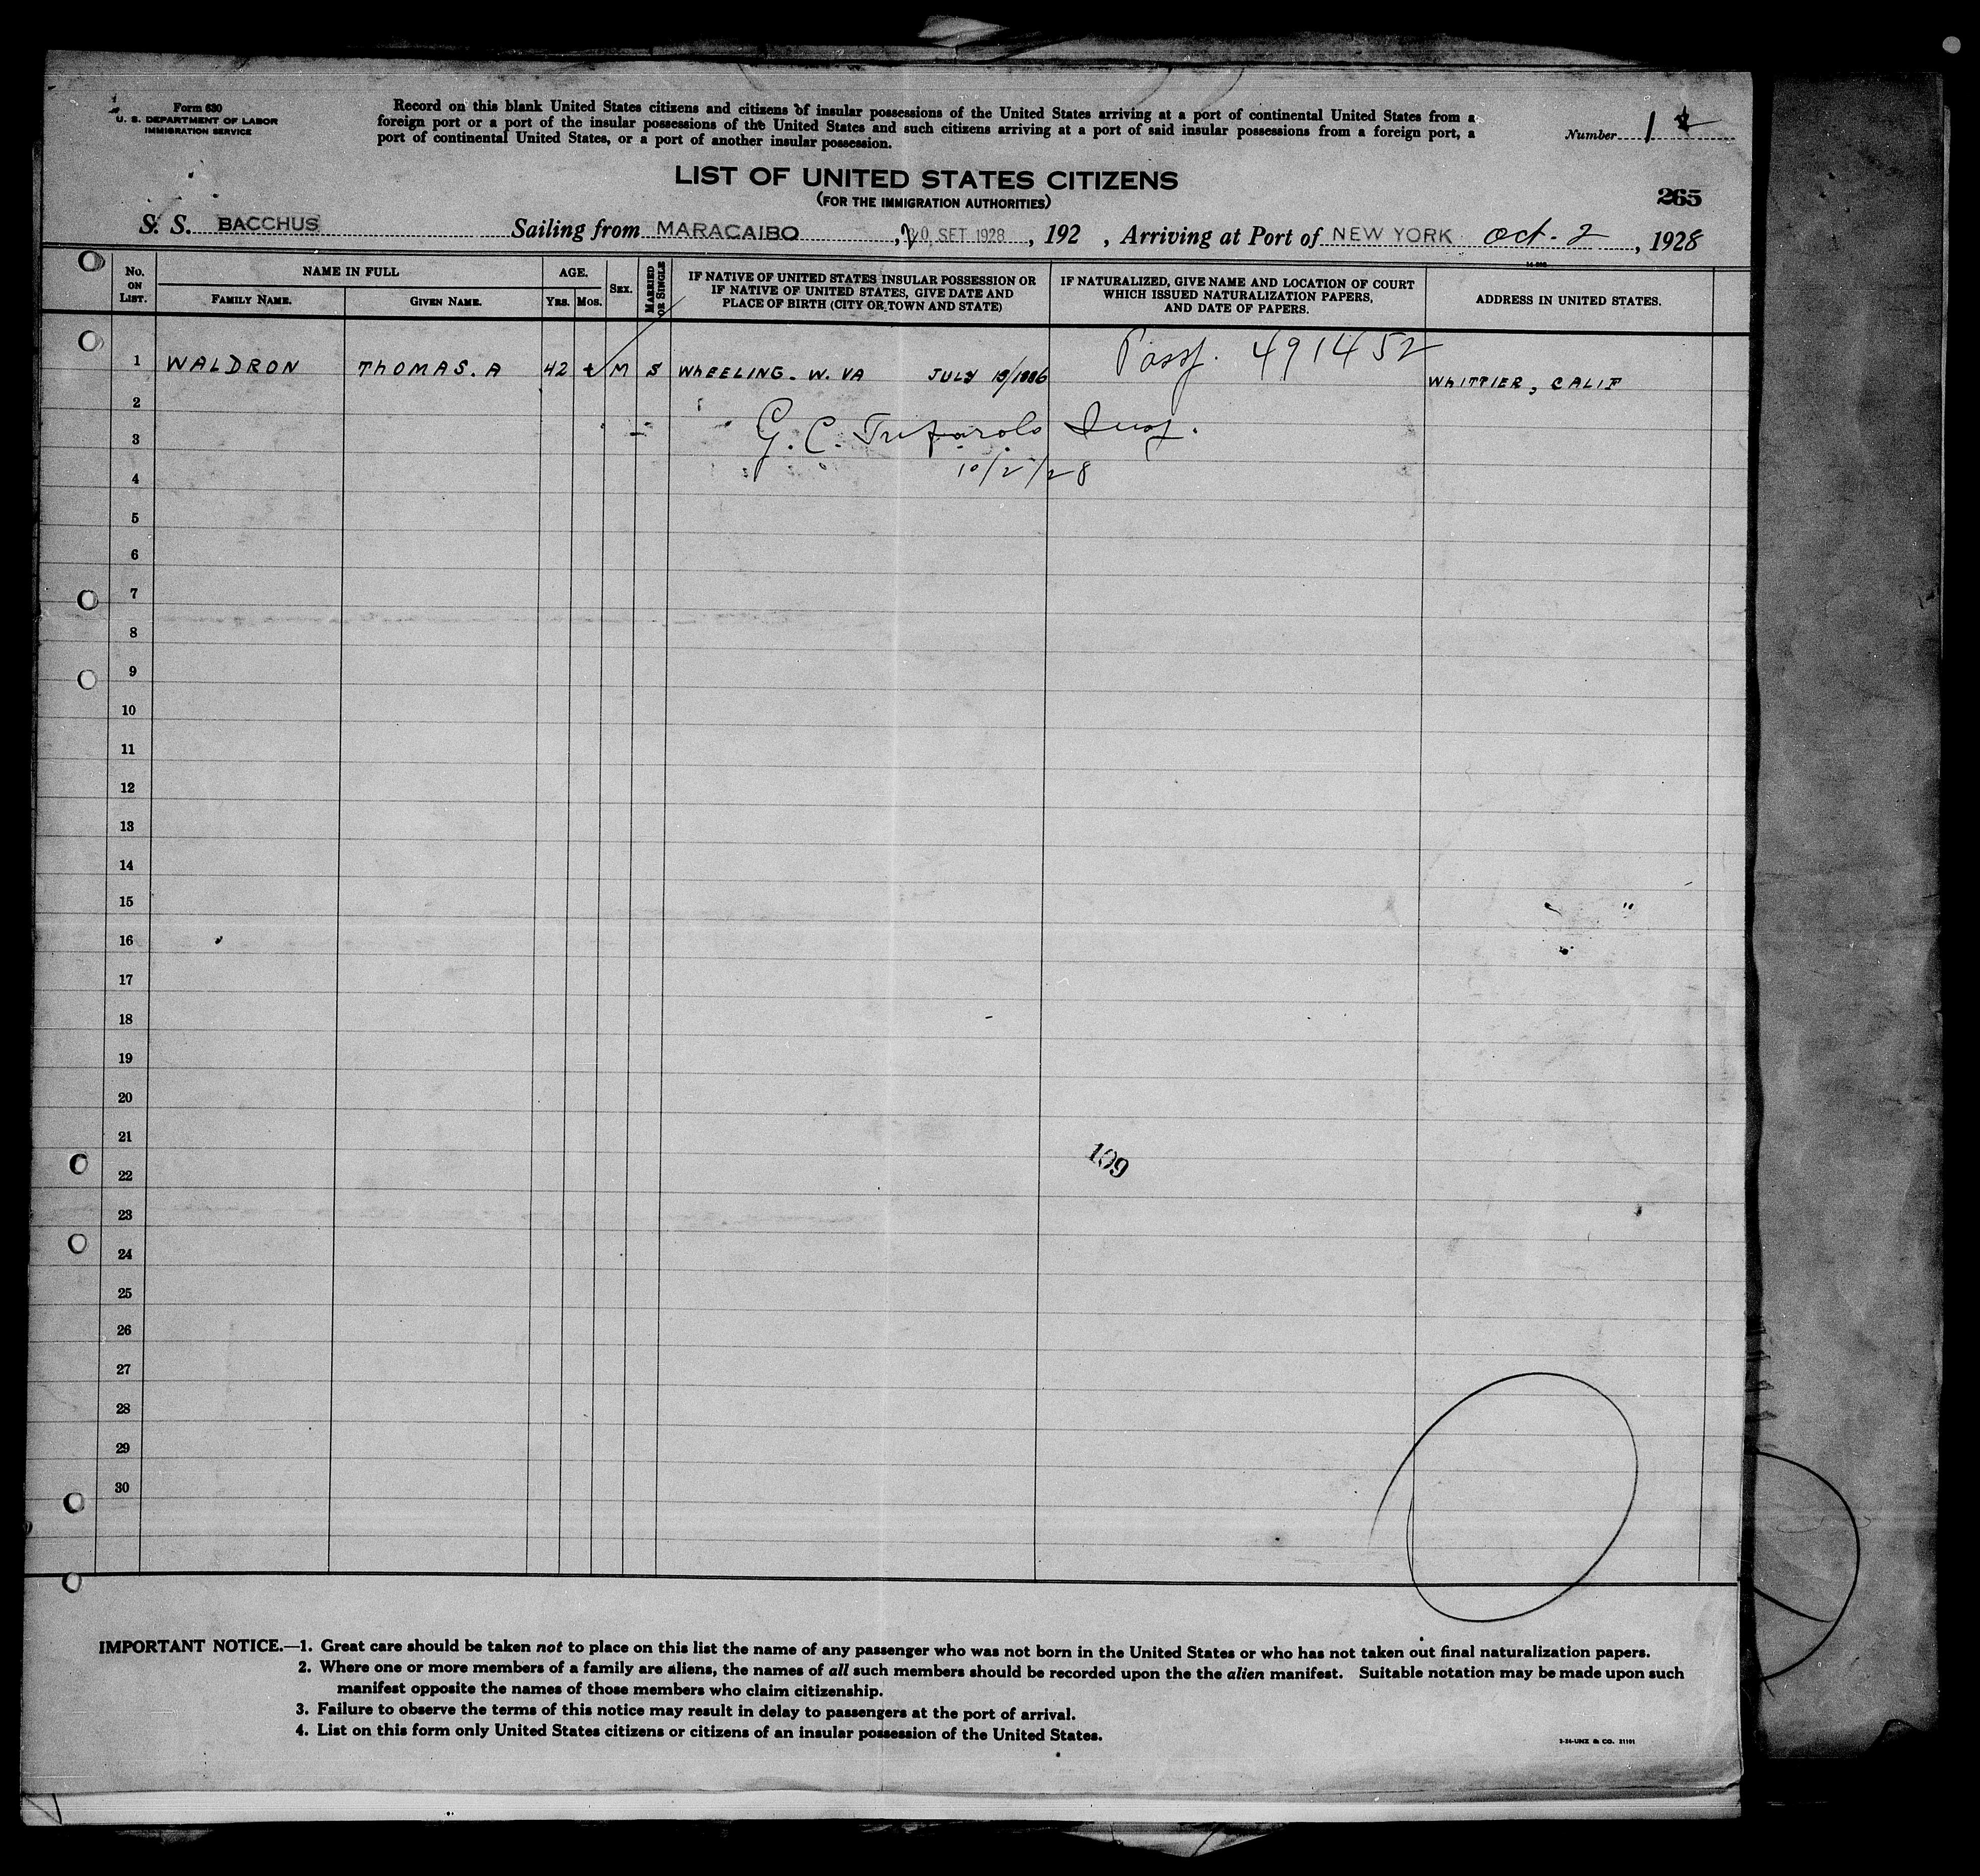 Form 630
U. S. DEPARTMENT OF LABOR
IMMIGRATION SERVICE
Record on this blank United States citizens and citizens of insular possessions of the United States arriving at a port of continental United States from a
foreign port or a port of the insular possessions of the United States and such citizens arriving at a port of said insular possessions from a foreign port, a
port of continental United States, or a port of another insular possession.
Number 1
LIST OF UNITED STATES CITIZENS
(FOR THE IMMIGRATION AUTHORITIES)
265
S. S. BACCHUS Sailing from MARACAIBO, 20 SET 1928, 192 , Arriving at Port of NEW YORK Oct. 2, 1928
No. ON LIST.
NAME IN FULL
FAMILY NAME.
GIVEN NAME.
AGE.
YRS. MOS.
SEX.
MARRIED OR SINGLE
IF NATIVE OF UNITED STATES INSULAR POSSESSION OR
IF NATIVE OF UNITED STATES, GIVE DATE AND
PLACE OF BIRTH (CITY OR TOWN AND STATE)
IF NATURALIZED, GIVE NAME AND LOCATION OF COURT
WHICH ISSUED NATURALIZATION PAPERS,
AND DATE OF PAPERS.
ADDRESS IN UNITED STATES.
1 WALDRON THOMAS. A 42 M S WHEELING. W. VA JULY /1886 Passp. 491452 WHITTIER, CALIF
2
3 G. C. Insp.
4 10/2/28
5
6
7
8
9
10
11
12
13
14
15
16
17
18
19
20
21
22 109
23
24
25
26
27
28
29
30
IMPORTANT NOTICE.—1. Great care should be taken not to place on this list the name of any passenger who was not born in the United States or who has not taken out final naturalization papers.
2. Where one or more members of a family are aliens, the names of all such members should be recorded upon the the alien manifest. Suitable notation may be made upon such
manifest opposite the names of those members who claim citizenship.
3. Failure to observe the terms of this notice may result in delay to passengers at the port of arrival.
4. List on this form only United States citizens or citizens of an insular possession of the United States.
3-24-UNZ & CO. 21101